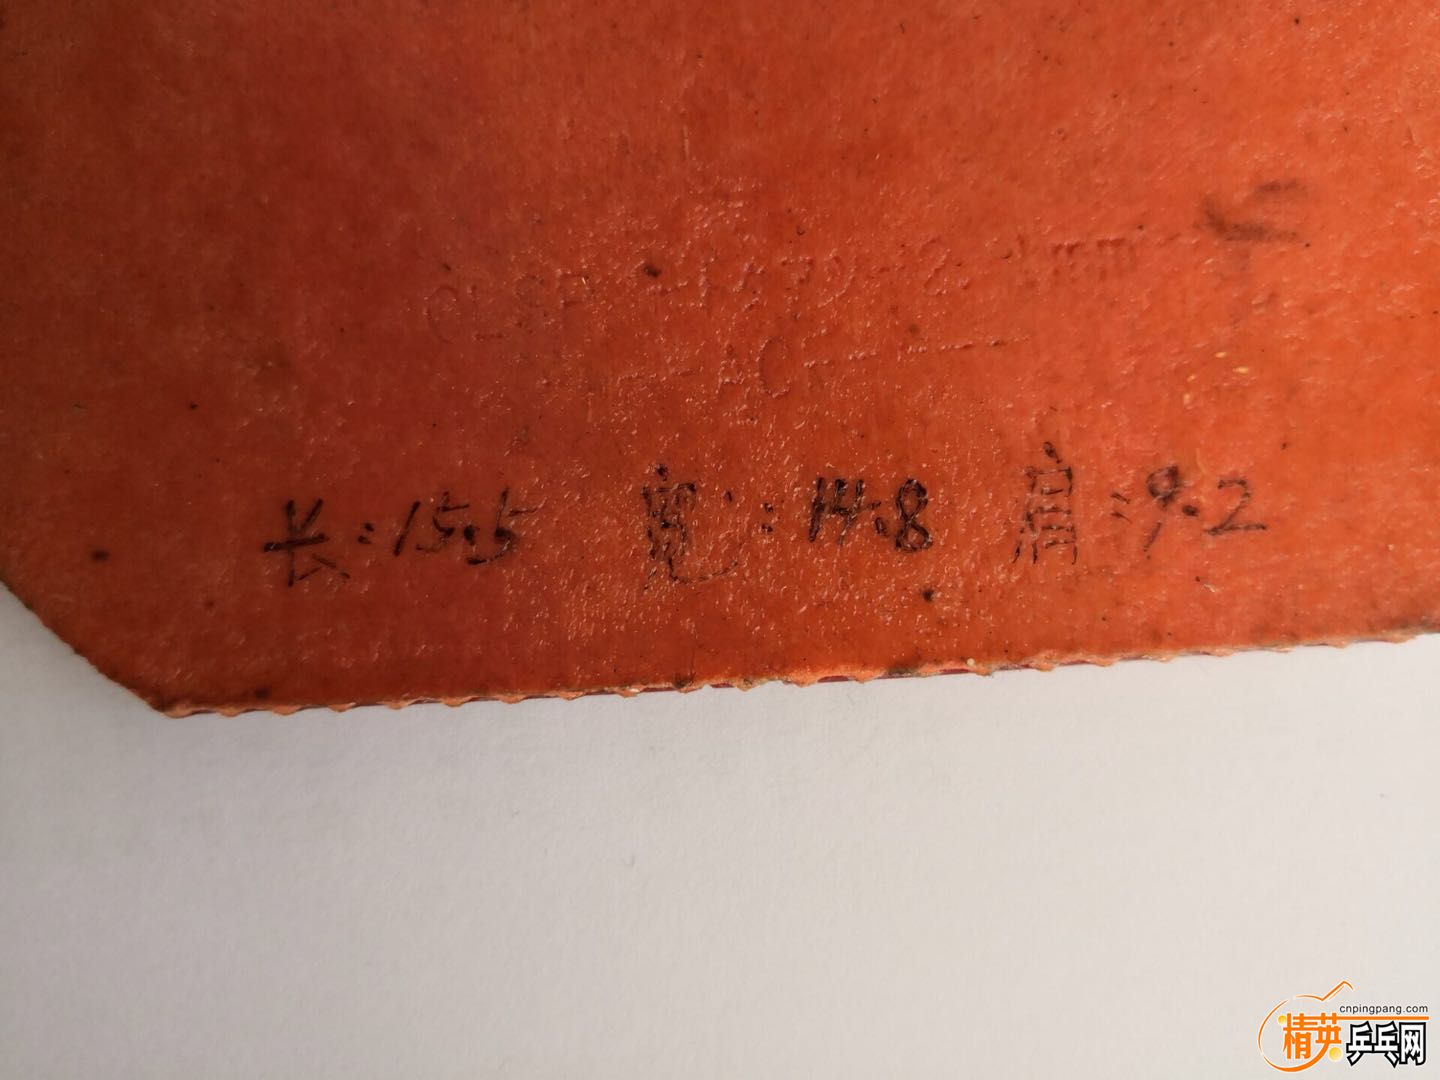 长:15.5 宽:14.8 肩:9.2
cnpingpang.com
精英乒乓网